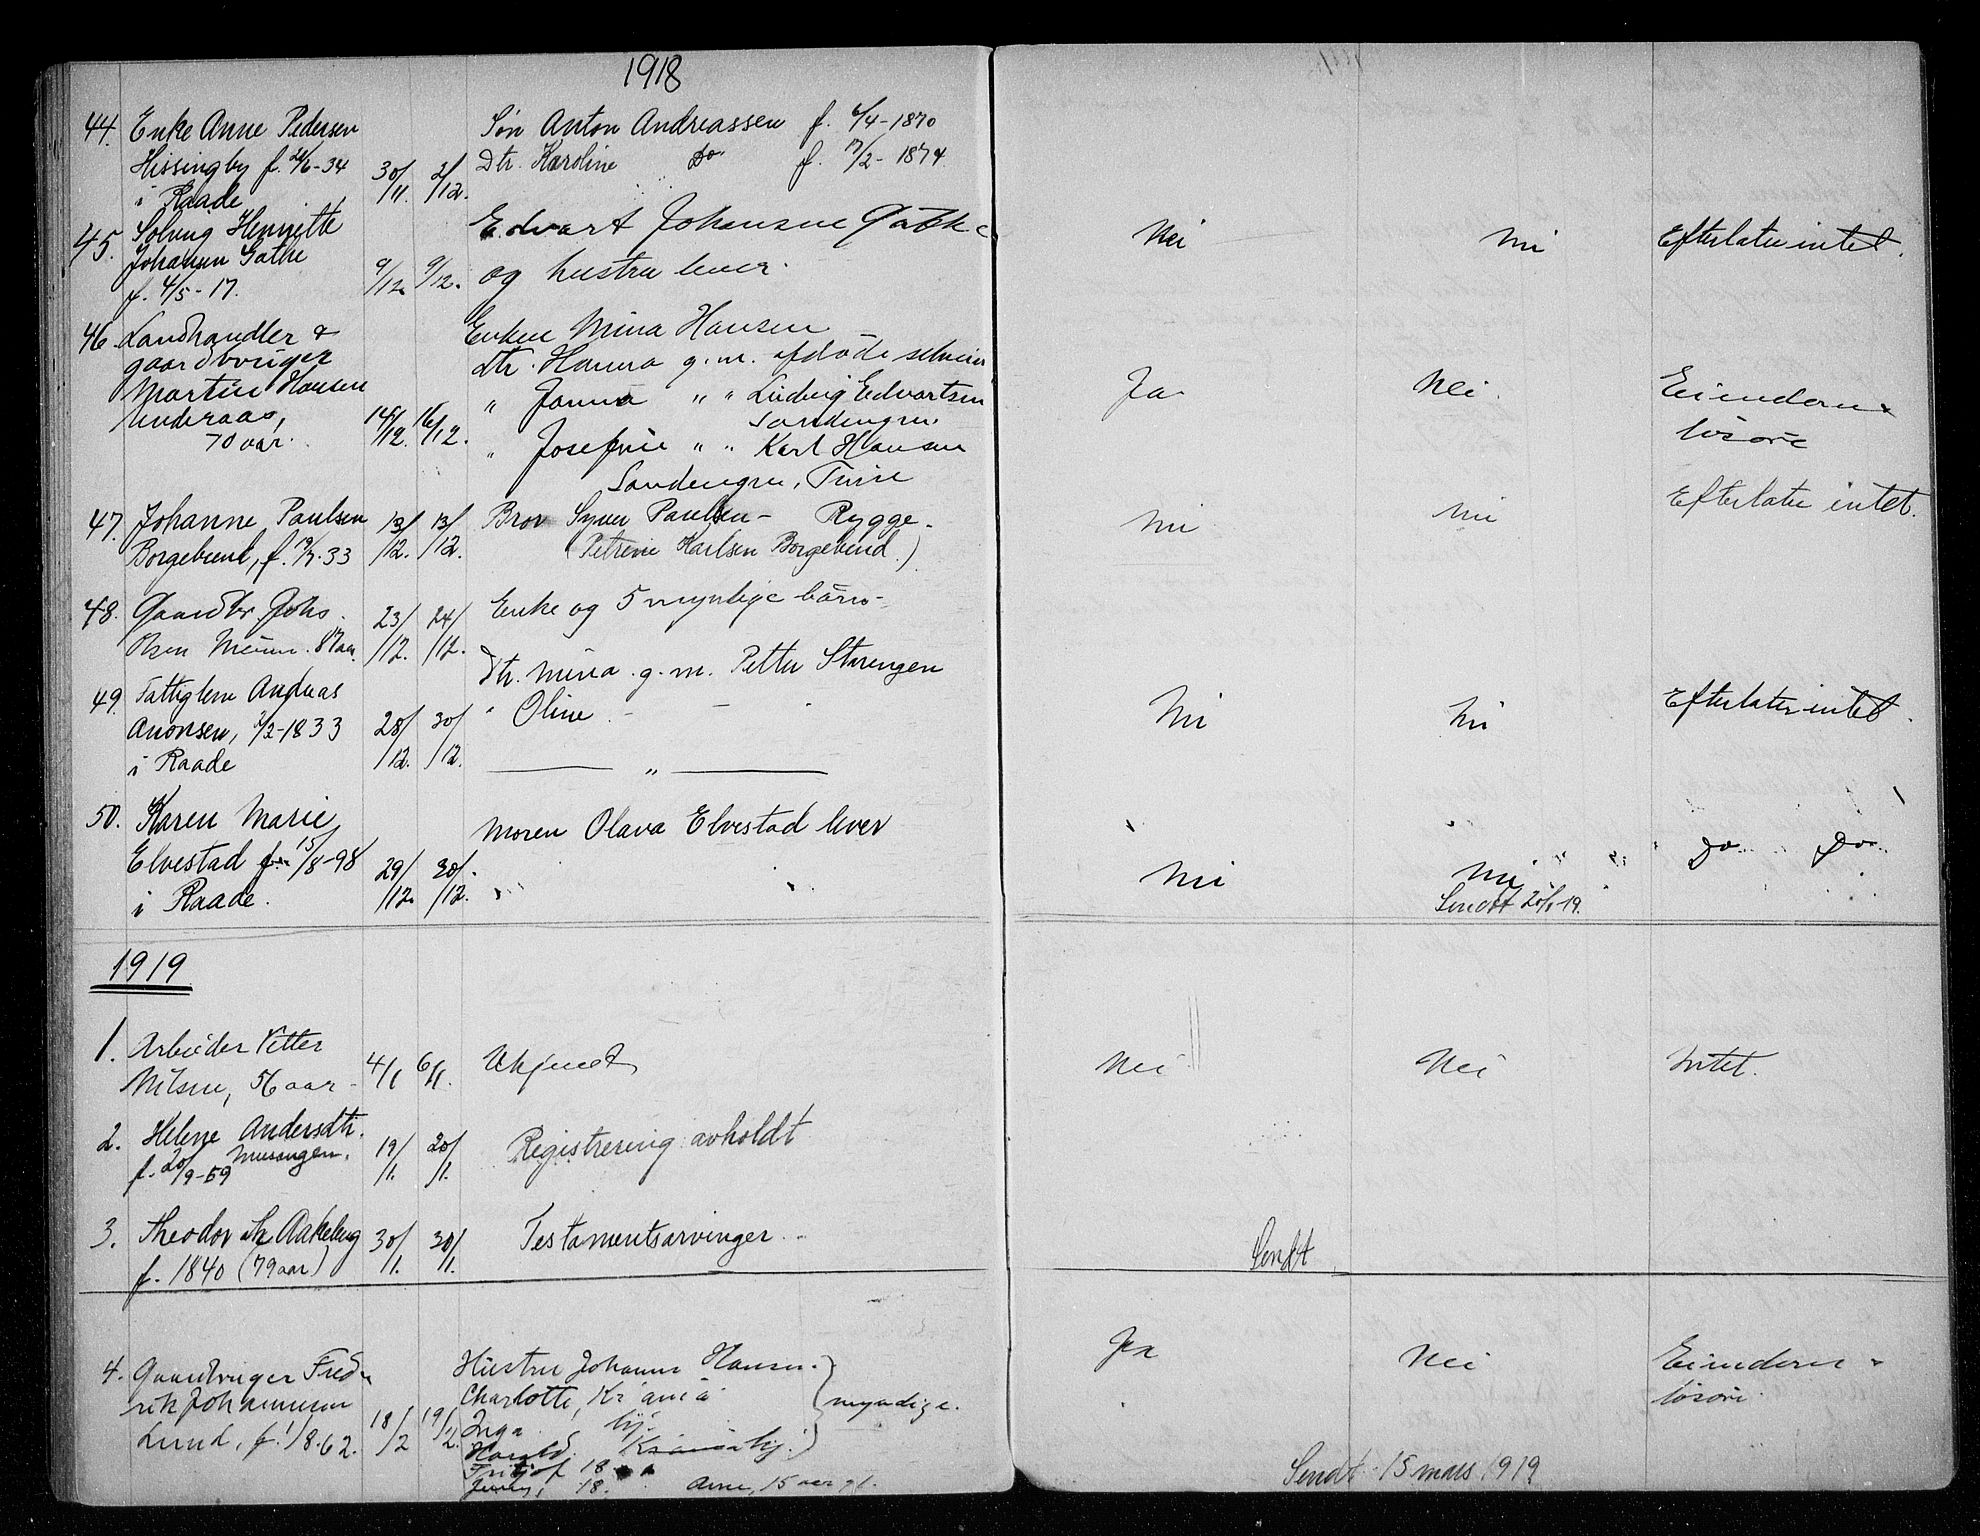 1918
44. Enke Anne Pedersen
Hissingby f. 24/6-34
i Raade
30/11. 2/12.
Søn Anton Andreassen f. 6/4-1870
Dtr. Karoline Do f. 17/2-1874
45. Solveig Henriette
Johansen Gathe
f. 4/5-17.
9/12. 9/12.
Edvart Johansen
og hustru lever.
Nei Nei Efterlater intet.
46. Landhandler &
gaardbruger
Martin Hansen
Underaas,
70 aar.
14/12. 16/12.
Enken Mina Hansen
Dtr. Hanna g.m. afdøde selveier
" Janna " " Ludvig Edvartsen
Sandengen.
" Josefine " " Karl Hansen
Sandengen,
Ja Nei. Eiendom &
løsøre
47. Johanne Paulsen
Borgebund, f. 19/7.33
13/12. 13/12.
Bror Syver Paulsen - Rygge.
(Petrine Karlsen Borgebund.)
Nei Nei Efterlater intet.
48. Gaardbr Johs.
Olsen 87 aar.
23/12. 24/12.
Enke og 5 myndige børn.
49. Fattiglem Andreas
Aronsen, 2/2-1833
i Raade
28/12. 30/12.
Dtr. Mina g.m. Petter Starengen
" Oline -
— " —
Nei Nei Efterlater intet.
50. Karen Marie
Elvestad f. 15/8-98
i Raade.
29/12. 30/12.
Moren Olava Elvestad lever
Nei Nei Do Do
Sendt 20/1-19.
1919
1. Arbeider Petter
Nilsen, 56 aar -
4/1 6/1.
Ukjendt
Nei Nei Intet.
2. Helene Andersdtr.
f. 20/9-59
19/1. 20/1.
Registrering avholdt
3. Theodor Aakeberg
f. 1840 (79 aar)
30/1. 30/1.
Testamentsarvinger
Sendt
4. Gaardbruger Fred-
rik Johannesen
Lund, f. 1/8.62.
18/2 19/2.
Hustru Johanne Hansen.
Charlotte, Kr.ania
Inga
Harald. Kr.ania by.
myndige.
Fritjof 18
Jenny, 18. Arne, 15 aar gl.
Ja Nei Eiendom &
løsøre.
Sendt 15 mars 1919